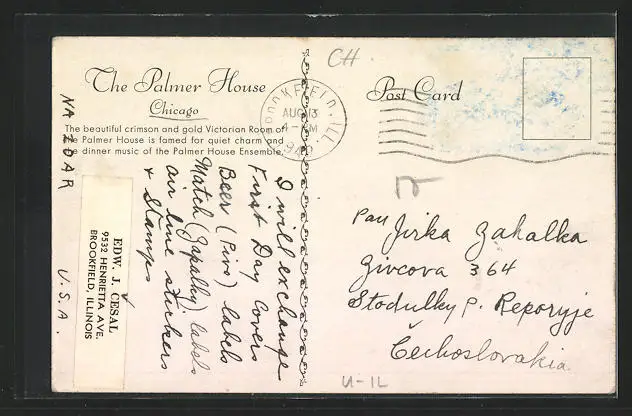 The Palmer House
Chicago
The beautiful crimson and gold Victorian Room of
the Palmer House is famed for quiet charm and
the dinner music of the Palmer House Ensemble.
CH
Post Card
BROOKFIELD, ILL.
AUG 13
NA ZDAR
U.S.A.
EDW. J. CESAL
9532 HENRIETTA AVE.
BROOKFIELD, ILLINOIS
I will exchange
First Day Covers
Beer (Pivo) labels
Match (Zapalky) labels
air line stickers
+ stamps
Pan Jirka Zahalka
Zivcova 364
Stodulky p. Reporyje
Čechoslovakia
U-IL